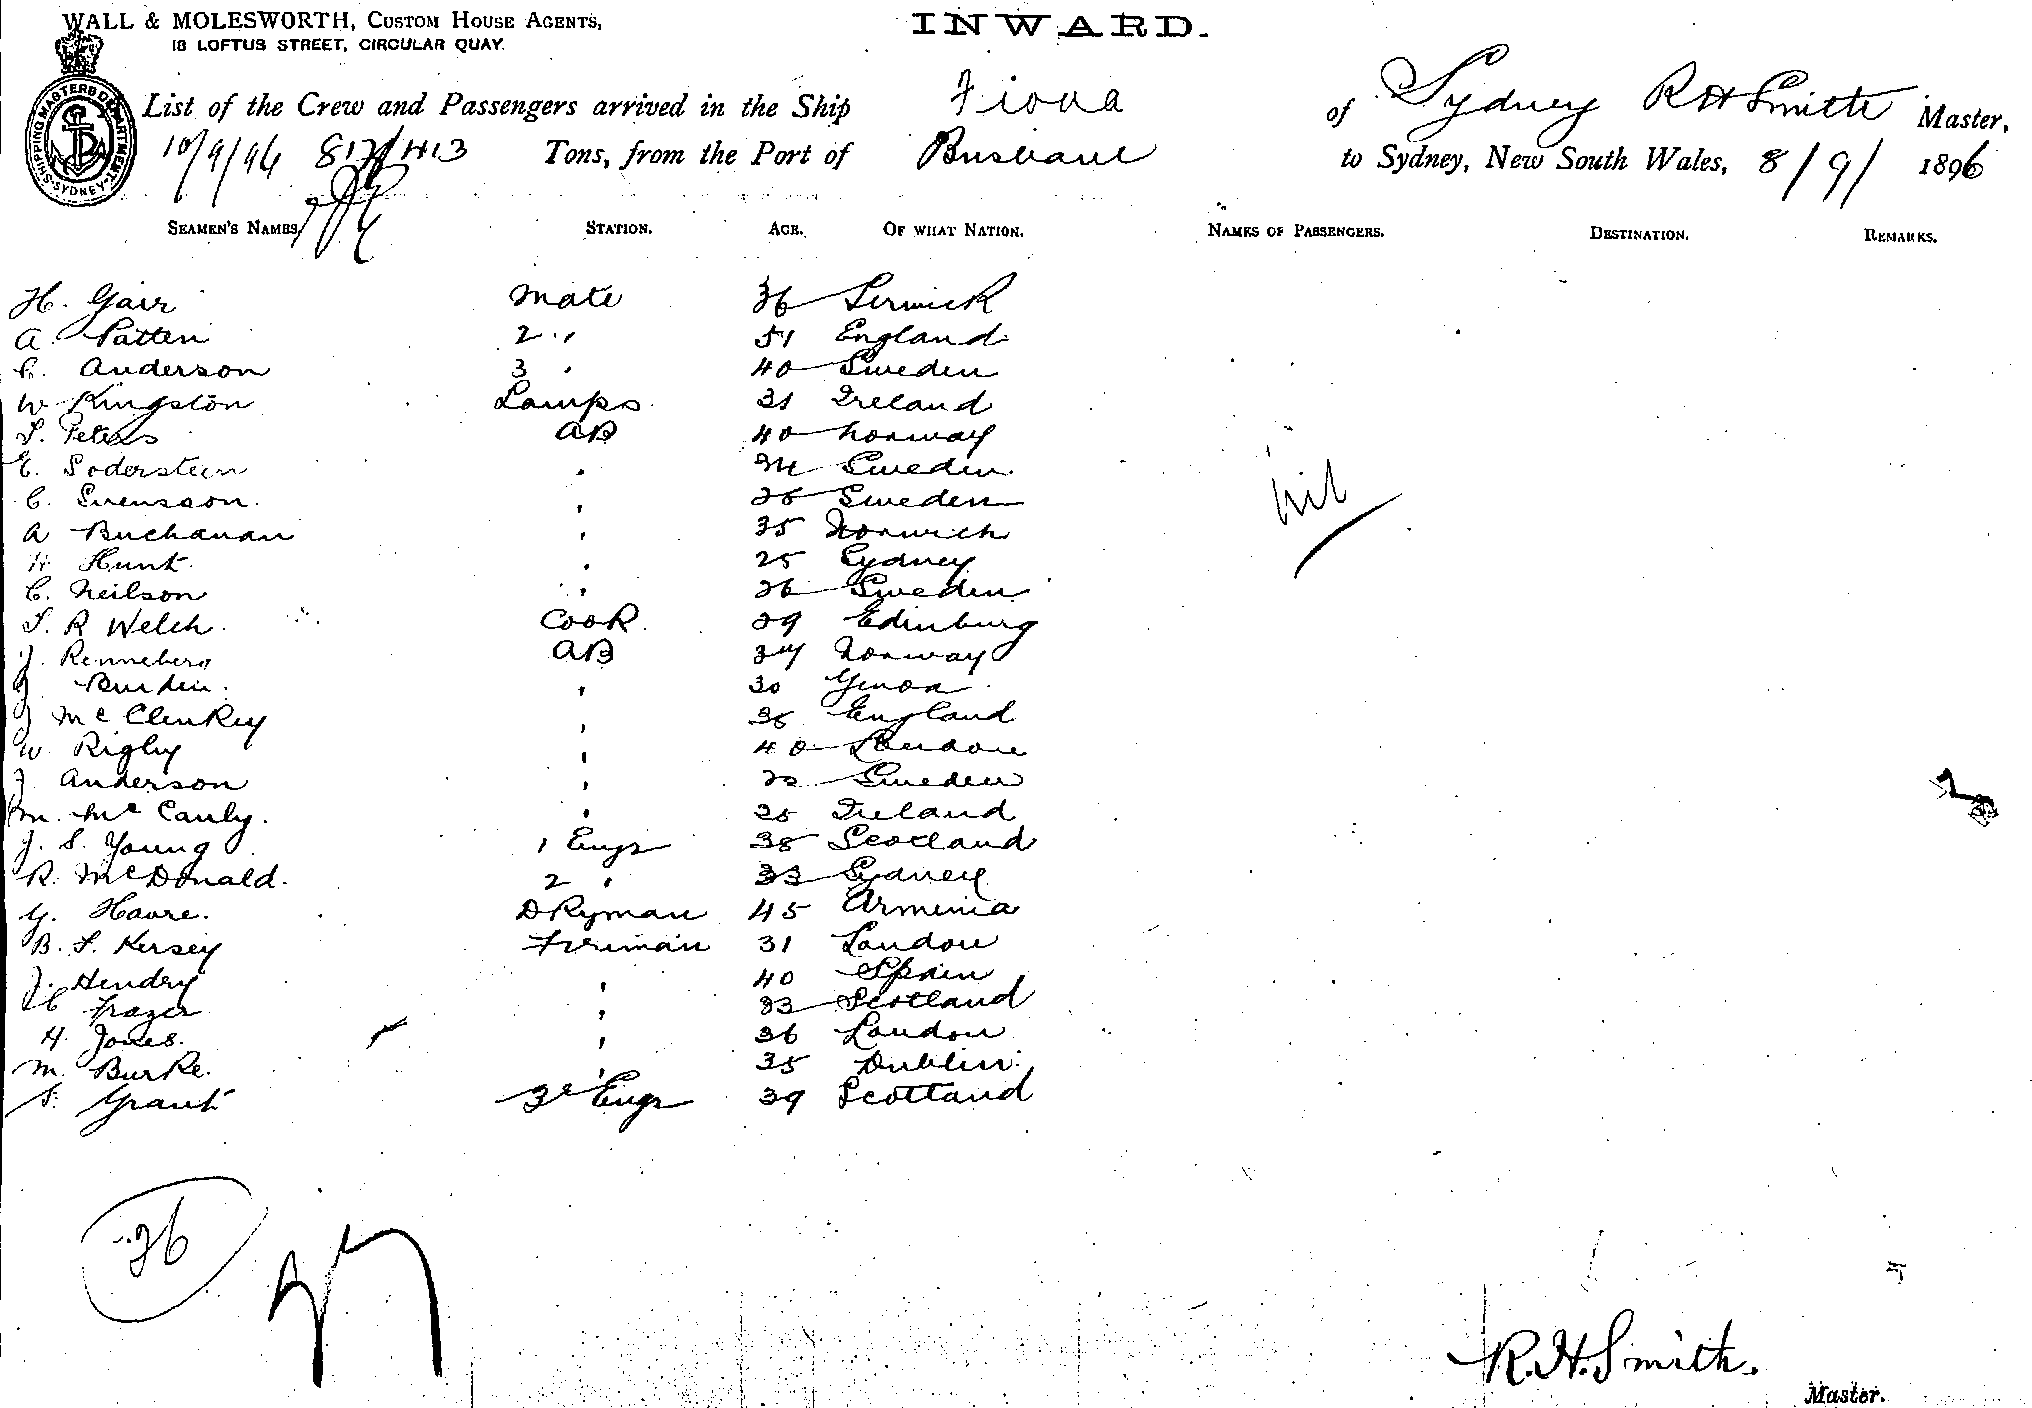 WALL & MOLESWORTH, CUSTOM HOUSE AGENTS,
18 LOFTUS STREET, CIRCULAR QUAY.
INWARD.
SHIPPING MASTERS DEPARTMENT SYDNEY
List of the Crew and Passengers arrived in the Ship Fiona of Sydney R H Smith Master,
10/9/96 817/1413 Tons, from the Port of Brisbane to Sydney, New South Wales, 8/9/ 1896
SEAMEN'S NAMES. STATION. AGE. OF WHAT NATION. NAMES OF PASSENGERS. DESTINATION. REMARKS.
H. Gair Mate 36 Lerwick
A. Patten 2 " 51 England
C. Anderson 3 " 40 Sweden
W Kingston Lamps 31 Ireland
Peters AB 40 Norway
E. Soderstein " Sweden
C. Svensson " 26 Sweden
A Buchanan " 35 Norwich
H Hunt " 25 Sydney
nil
C. Neilson " 26 Sweden
R Welch Cook 29 Edinburg
J. Renneberg AB 34 Norway
Burdin " 30 Genoa
J McClenkey " 36 England
W. Rigby " 40 London
J Anderson " Sweden
M. McCauly " Ireland
J. S. Young 1 Engr 38 Scotland
R. McDonald 2 " 33 Sydney
G. Havre DKyman 45 Armenia
B. Kersey Fireman 31 London
J. Hendry " 40 Spain
C Frazer " 33 Scotland
H. Jones " 36 London
M. Burke " 35 Dublin
Grant 3r Engr 39 Scotland
26
R. H. Smith.
Master.